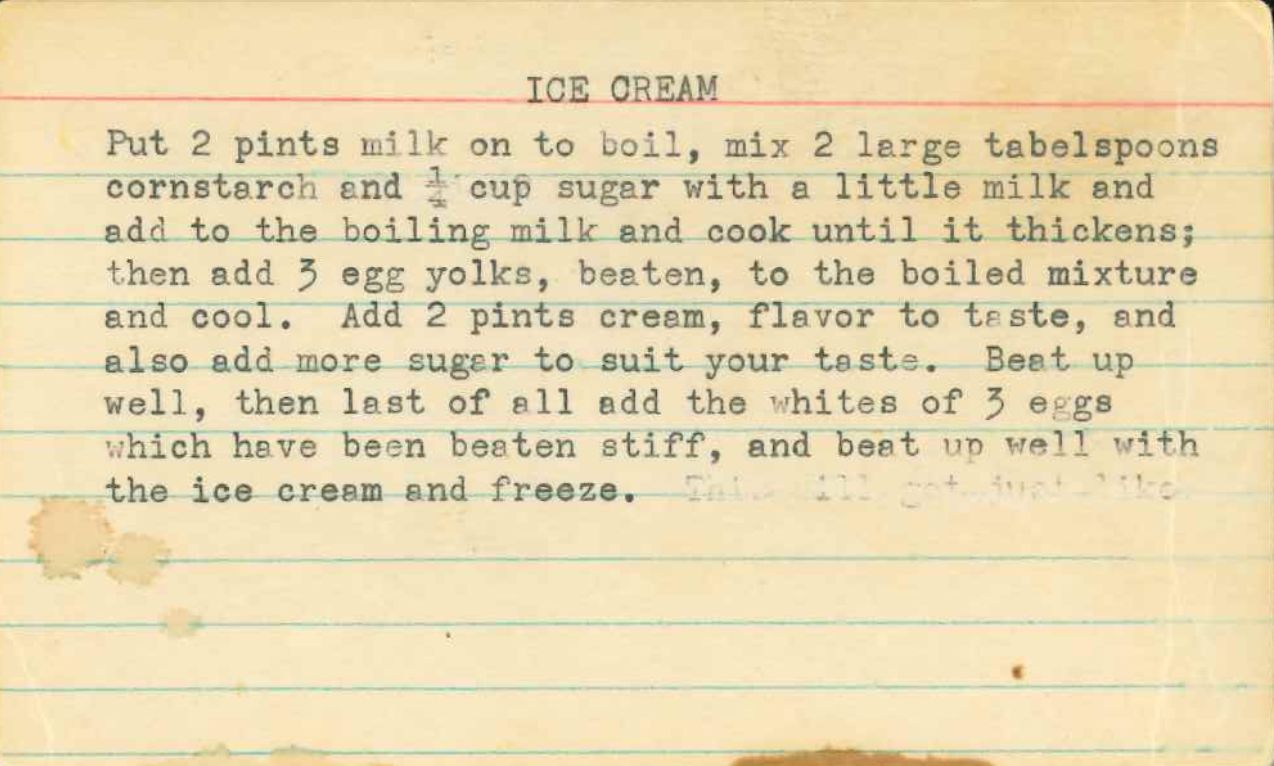 ICE CREAM
Put 2 pints milk on to boil, mix 2 large tabelspoons
cornstarch and ¼ cup sugar with a little milk and
add to the boiling milk and cook until it thickens;
then add 3 egg yolks, beaten, to the boiled mixture
and cool. Add 2 pints cream, flavor to taste, and
also add more sugar to suit your taste. Beat up
well, then last of all add the whites of 3 eggs
which have been beaten stiff, and beat up well with
the ice cream and freeze. This will get just like